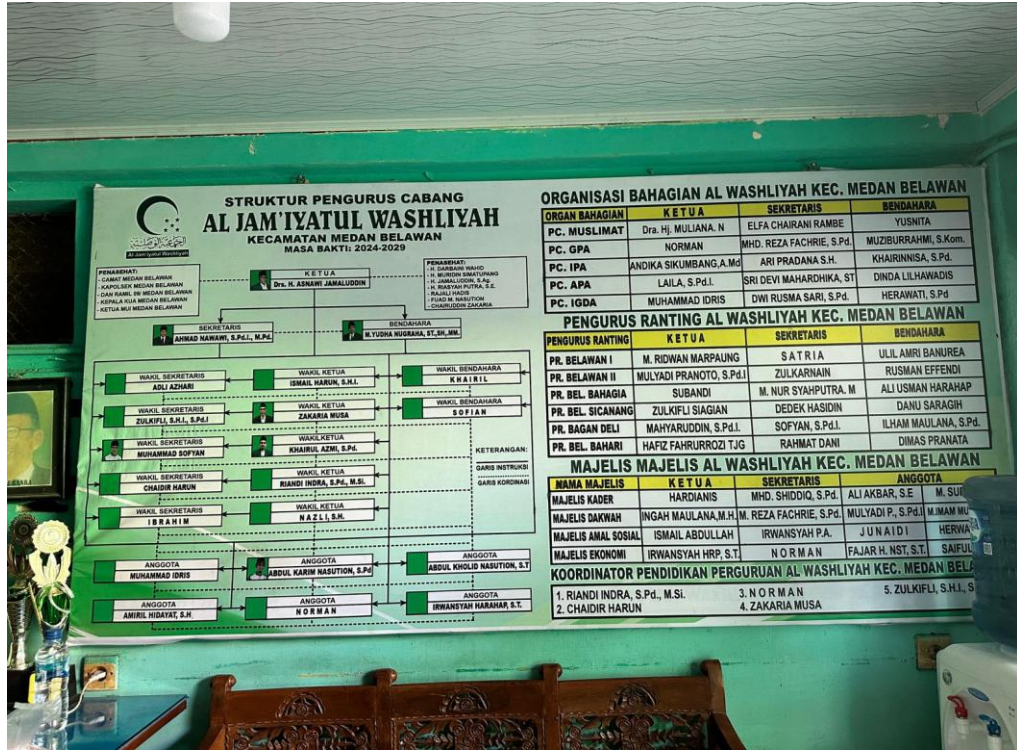 Al Jam'iyatul Washliyah
STRUKTUR PENGURUS CABANG
AL JAM'IYATUL WASHLIYAH
KECAMATAN MEDAN BELAWAN
MASA BAKTI: 2024-2029
PENASEHAT:
- CAMAT MEDAN BELAWAN
- KAPOLSEK MEDAN BELAWAN
- DAN RAMIL 09/ MEDAN BELAWAN
- KEPALA KUA MEDAN BELAWAN
- KETUA MUI MEDAN BELAWAN
KETUA
Drs. H. ASNAWI JAMALUDDIN
PENASEHAT:
- H. DARBAINI WAHID
- H. MURIDIN SIMATUPANG
- H. JAMALUDDIN, S.Ag.
- H. RIASYAH PUTRA, S.E.
- RAJALI HADIS
- FUAD M. NASUTION
- CHAIRUDDIN ZAKARIA
SEKRETARIS
AHMAD NAWAWI, S.Pd.I., M.Pd.
BENDAHARA
M.YUDHA NUGRAHA, ST.,SH.,MM.
WAKIL SEKRETARIS
ADLI AZHARI
WAKIL KETUA
ISMAIL HARUN, S.H.I.
WAKIL BENDAHARA
KHAIRIL
WAKIL SEKRETARIS
ZULKIFLI, S.H.I., S.Pd.I
WAKIL KETUA
ZAKARIA MUSA
WAKIL BENDAHARA
SOFIAN
WAKIL SEKRETARIS
MUHAMMAD SOFYAN
WAKILKETUA
KHAIRUL AZMI, S.Pd.
KETERANGAN:
GARIS INSTRUKSI
GARIS KORDINASI
WAKIL SEKRETARIS
CHAIDIR HARUN
WAKIL KETUA
RIANDI INDRA, S.Pd., M.Si.
WAKIL SEKRETARIS
IBRAHIM
WAKIL KETUA
NAZLI, S.H.
ANGGOTA
MUHAMMAD IDRIS
ANGGOTA
ABDUL KARIM NASUTION, S.Pd
ANGGOTA
ABDUL KHOLID NASUTION, S.T
ANGGOTA
AMIRIL HIDAYAT, S.H
ANGGOTA
NORMAN
ANGGOTA
IRWANSYAH HARAHAP, S.T.
ORGANISASI BAHAGIAN AL WASHLIYAH KEC. MEDAN BELAWAN
ORGAN BAHAGIAN KETUA SEKRETARIS BENDAHARA
PC. MUSLIMAT Dra. Hj. MULIANA. N ELFA CHAIRANI RAMBE YUSNITA
PC. GPA NORMAN MHD. REZA FACHRIE, S.Pd. MUZIBURRAHMI, S.Kom.
PC. IPA ANDIKA SIKUMBANG,A.Md ARI PRADANA S.H. KHAIRINNISA, S.Pd.
PC. APA LAILA, S.Pd.I. SRI DEVI MAHARDHIKA, ST DINDA LILHAWADIS
PC. IGDA MUHAMMAD IDRIS DWI RUSMA SARI, S.Pd. HERAWATI, S.Pd
PENGURUS RANTING AL WASHLIYAH KEC. MEDAN BELAWAN
PENGURUS RANTING KETUA SEKRETARIS BENDAHARA
PR. BELAWAN I M. RIDWAN MARPAUNG SATRIA ULIL AMRI BANUREA
PR. BELAWAN II MULYADI PRANOTO, S.Pd.I ZULKARNAIN RUSMAN EFFENDI
PR. BEL. BAHAGIA SUBANDI M. NUR SYAHPUTRA. M ALI USMAN HARAHAP
PR. BEL. SICANANG ZULKIFLI SIAGIAN DEDEK HASIDIN DANU SARAGIH
PR. BAGAN DELI MAHYARUDDIN, S.Pd.I. SOFYAN, S.Pd.I. ILHAM MAULANA, S.Pd.
PR. BEL. BAHARI HAFIZ FAHRURROZI TJG RAHMAT DANI DIMAS PRANATA
MAJELIS MAJELIS AL WASHLIYAH KEC. MEDAN BELAWAN
NAMA MAJELIS KETUA SEKRETARIS ANGGOTA
MAJELIS KADER HARDIANIS MHD. SHIDDIQ, S.Pd. ALI AKBAR, S.E M.
MAJELIS DAKWAH INGAH MAULANA,M.H. M. REZA FACHRIE, S.Pd. MULYADI P., S.Pd.I M.IMAM
MAJELIS AMAL SOSIAL ISMAIL ABDULLAH IRWANSYAH P.A. JUNAIDI
MAJELIS EKONOMI IRWANSYAH HRP, S.T. NORMAN FAJAR H. NST, S.T. SAIFUL
KOORDINATOR PENDIDIKAN PERGURUAN AL WASHLIYAH KEC. MEDAN
1. RIANDI INDRA, S.Pd., M.Si. 3. NORMAN 5. ZULKIFLI, S.H.I.,
2. CHAIDIR HARUN 4. ZAKARIA MUSA